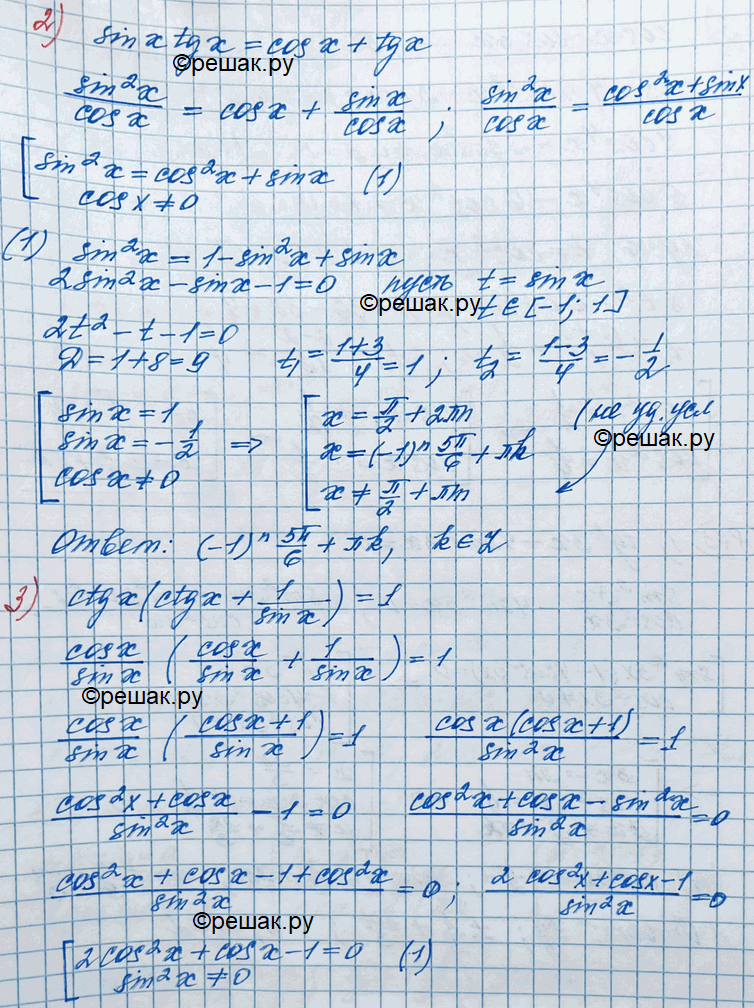 2) sin x tg x = cos x + tg x
©решак.ру
sin²x/cos x = cos x + sin x/cos x ; sin²x/cos x = (cos²x + sin x)/cos x
[ sin²x = cos²x + sin x (1)
cos x ≠ 0
(1) sin²x = 1 - sin²x + sin x
2sin²x - sin x - 1 = 0 пусть t = sin x
©решак.ру t ∈ [-1; 1]
2t² - t - 1 = 0
D = 1 + 8 = 9 t₁ = (1+3)/4 = 1 ; t₂ = (1-3)/4 = -1/2
[ sin x = 1 [ x = π/2 + 2πn (не уд. усл
sin x = -1/2 ⇒ x = (-1)ⁿ 5π/6 + πk ©решак.ру
cos x ≠ 0 x ≠ π/2 + πm
Ответ: (-1)ⁿ 5π/6 + πk, k ∈ Z
3) ctg x (ctg x + 1/sin x) = 1
cos x/sin x (cos x/sin x + 1/sin x) = 1
©решак.ру
cos x/sin x ((cos x + 1)/sin x) = 1 cos x(cos x + 1)/sin²x = 1
(cos²x + cos x)/sin²x - 1 = 0 (cos²x + cos x - sin²x)/sin²x = 0
(cos²x + cos x - 1 + cos²x)/sin²x = 0 ; (2 cos²x + cos x - 1)/sin²x = 0
©решак.ру
[ 2cos²x + cos x - 1 = 0 (1)
sin²x ≠ 0